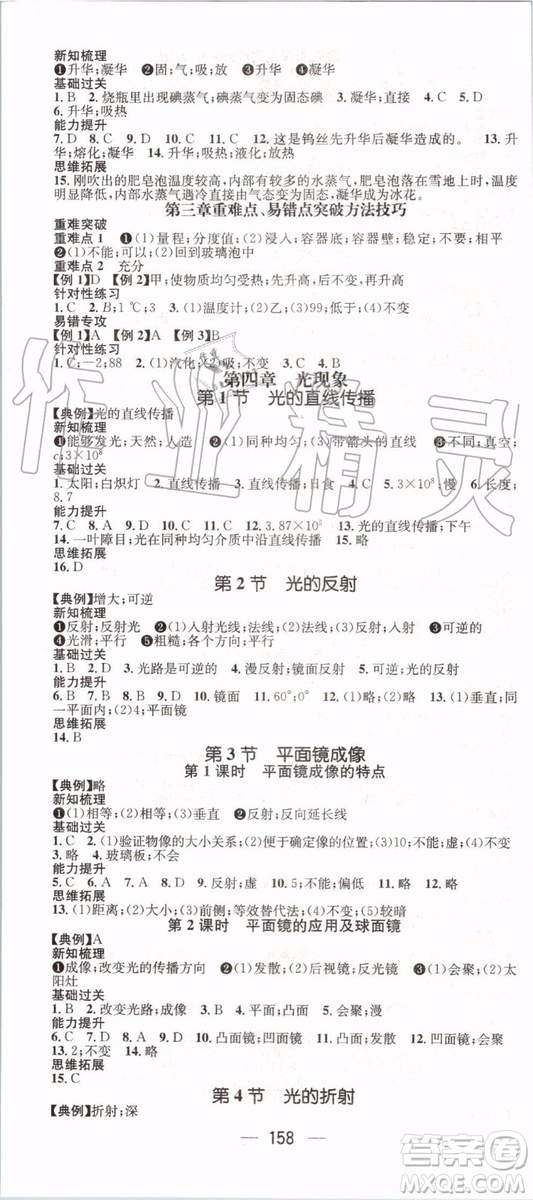 新知梳理
❶升华;凝华 ❷固;气;吸;放 ❸升华 ❹凝华
基础过关
1. B 2. 烧瓶里出现碘蒸气;碘蒸气变为固态碘 3. 凝华;直接 4. D 5. D
6. 升华;吸热
能力提升
7. D 8. C 9. A 10. C 11. C 12. 这是钨丝先升华后凝华造成的。 13. 升
华;熔化;凝华 14. 升华;吸热;液化;放热
思维拓展
15. 刚吹出的肥皂泡温度较高,含有较多的水蒸气,肥皂泡落在雪地上时,其
内部的水蒸气遇冷直接由气态变为固态,凝华成为冰花。
第三章重难点、易错点突破方法技巧
重难突破
重难点 1 ❶(1)量程;分度值;(2)浸入;容器底;容器壁;稳定;不要;相平
❷(1)不能;可以;(2)回到玻璃泡中
重难点 2 充分
【例 1】D 【例 2】甲;使物质均匀受热;先升高,后不变,再升高
针对性练习
1. C 2. B 3. 1℃;3 4. (1)温度计;(2)乙;(3)99;低于;(4)不变
易错专攻
【例 1】A 【例 2】A 【例 3】B
针对性练习
1. C;-2;88 2. (1)汽化;(2)吸;不变 3. C 4. B
第四章 光现象
第 1 节 光的直线传播
【典例】光的直线传播
新知梳理
❶能够发光;天然;人造 ❷(1)同种均匀;(3)带箭头的直线 ❸不同;真空;
c;3×10⁸
基础过关
1. 太阳;白炽灯 2. 直线传播 3. 直线传播;日食 4. C 5. 3×10⁸;慢 6. 长度;
8.7
能力提升
7. C 8. A 9. D 10. A 11. D 12. 3.87×10⁵ 13. 光的直线传播;下午
14. 一叶障目;光在同种均匀介质中沿直线传播 15. 略
思维拓展
16. D
第 2 节 光的反射
【典例】增大;可逆
新知梳理
❶反射;反射光 ❷(1)入射光线;法线;(2)法线;(3)反射;入射 ❸可逆的
❹光滑;平行 ❺粗糙;各个方向;平行
基础过关
1. B 2. D 3. 光路是可逆的 4. 漫反射;镜面反射 5. 可逆;光的反射
能力提升
6. B 7. A 8. D 9. D 10. 镜面 11. 60°;0° 12. (1)略;(2)略 13. (1)垂直;同
一平面内;(2)4;平面镜
思维拓展
14. B
第 3 节 平面镜成像
第 1 课时 平面镜成像的特点
【典例】略
新知梳理
❶(1)相等;(2)相等;(3)垂直 ❷反射;反向延长线
基础过关
1. C 2. (1)验证物像的大小关系;(2)便于确定像的位置;(3)10;不能;虚;(4)不变
3. 略 4. 玻璃板;不会
能力提升
5. C 6. D 7. C 8. D 9. 反射;虚 10. 5;不能;偏低 11. 略 12. 略
思维拓展
13. (1)距离;(2)大小;(3)前侧;等效替代法;(4)不变;(5)较暗
第 2 课时 平面镜的应用及球面镜
【典例】A
新知梳理
❶成像;改变光的传播方向 ❷(1)发散;(2)后视镜;反光镜 ❸(1)会聚;(2)太
阳灶
基础过关
1. B 2. 改变光路;成像 3. B 4. 平面;凸面 5. 会聚;漫
能力提升
6. C 7. D 8. A 9. D 10. 凸面镜;凹面镜 11. 凸面;发散 12. 凹面镜;会聚
13. 2;不变 14. 略
思维拓展
15. C
第 4 节 光的折射
【典例】折射;深
158
作业精灵
答案圈